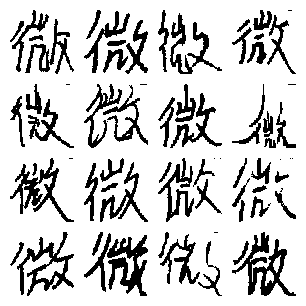 微微微微
微微微微
微微微微
微微微微